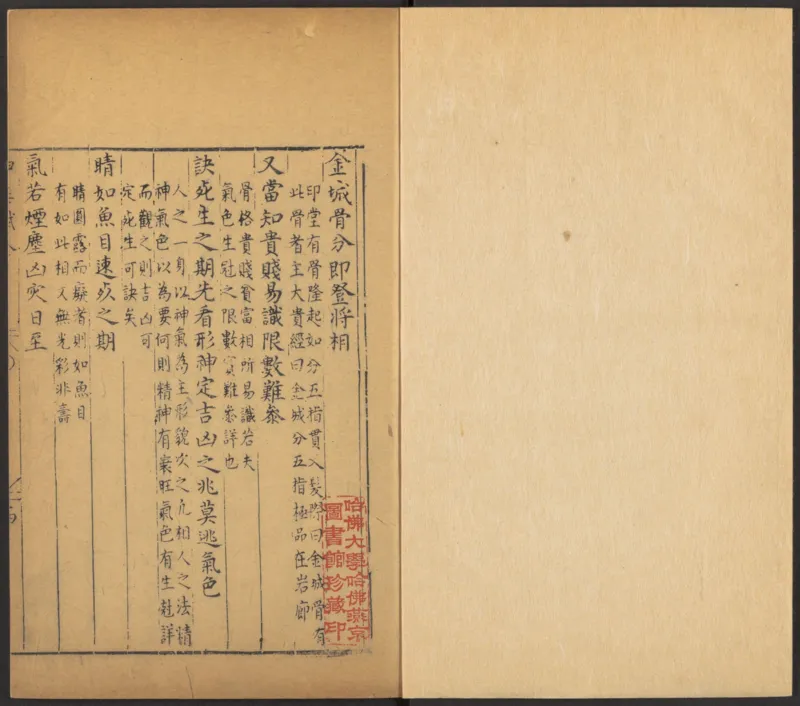 金城骨分即登將相
印堂有骨隆起如分五指貫入髮際曰金城骨有
此骨者主大貴經曰金城分五指極品在岩廊
又當知貴賤易識限數難叅
骨格貴賤貧富相所易識若夫
氣色生尅之限數實難叅詳也
訣死生之期先看形神定吉凶之兆莫逃氣色
人之一身以神氣為主形貌次之凢相人之法精
神氣色以為要何則精神有衰旺氣色有生尅詳
而觀之則吉凶可
定死生可訣矣
睛如魚目速死之期
睛圓露而癡者則如魚目
有如此相又無光彩非壽
氣若煙塵凶灾日至
哈佛大學哈佛燕京
圖書館珍藏印